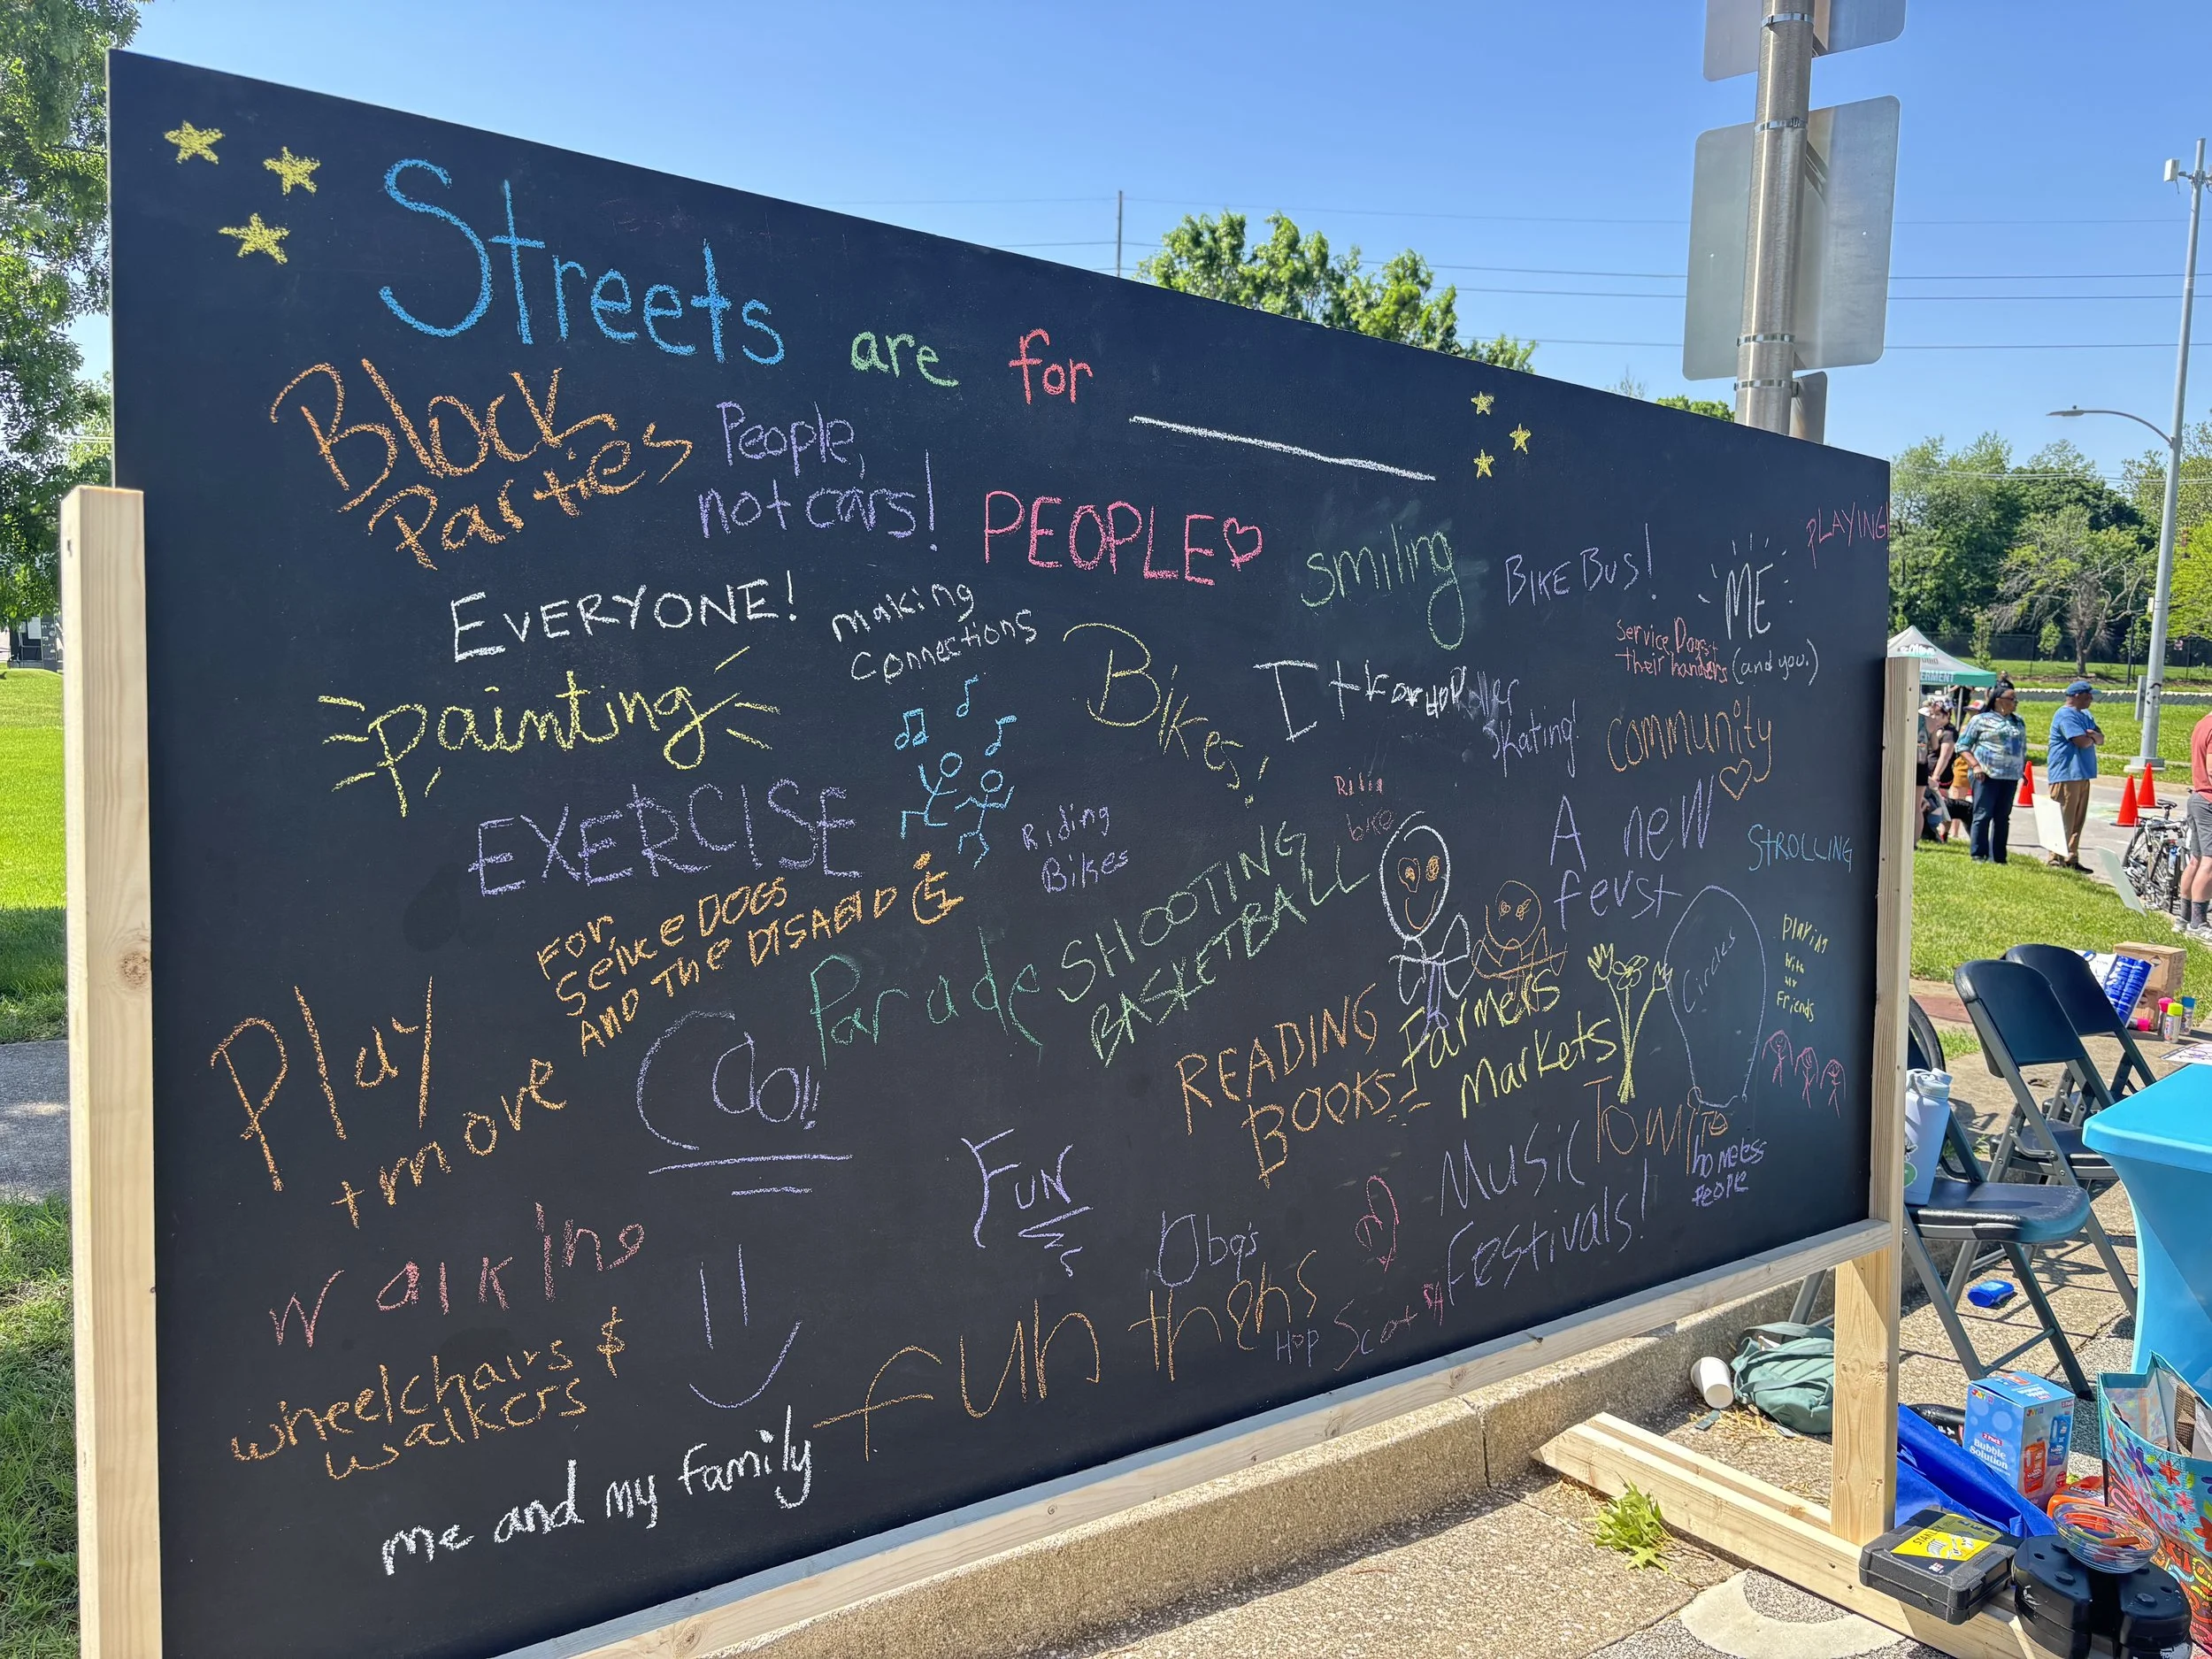 Streets are for
Block
Parties
People,
not cars!
PEOPLE
smiling
BIKE BUS!
ME
(and you.)
PLAYING!
EVERYONE!
making
connections
Service Dogs +
their handlers
painting
Bikes!
Roller
skating!
community
EXERCISE
Riding
Bikes
Ridin
bike
A new
ferst
STROLLING
FOR
SeIke DOGS
AND The DISABID
Parade
SHOOTING
BASKETBALL
Circles
Playing
with
my
Friends
Play
+ move
READING
BOOKS
Farmers
Markets
FUN
Music
Festivals!
homeless
People
walking
wheelchairs &
walkers
fun thehs
Hop Scot
me and my family
Bubble
Solution